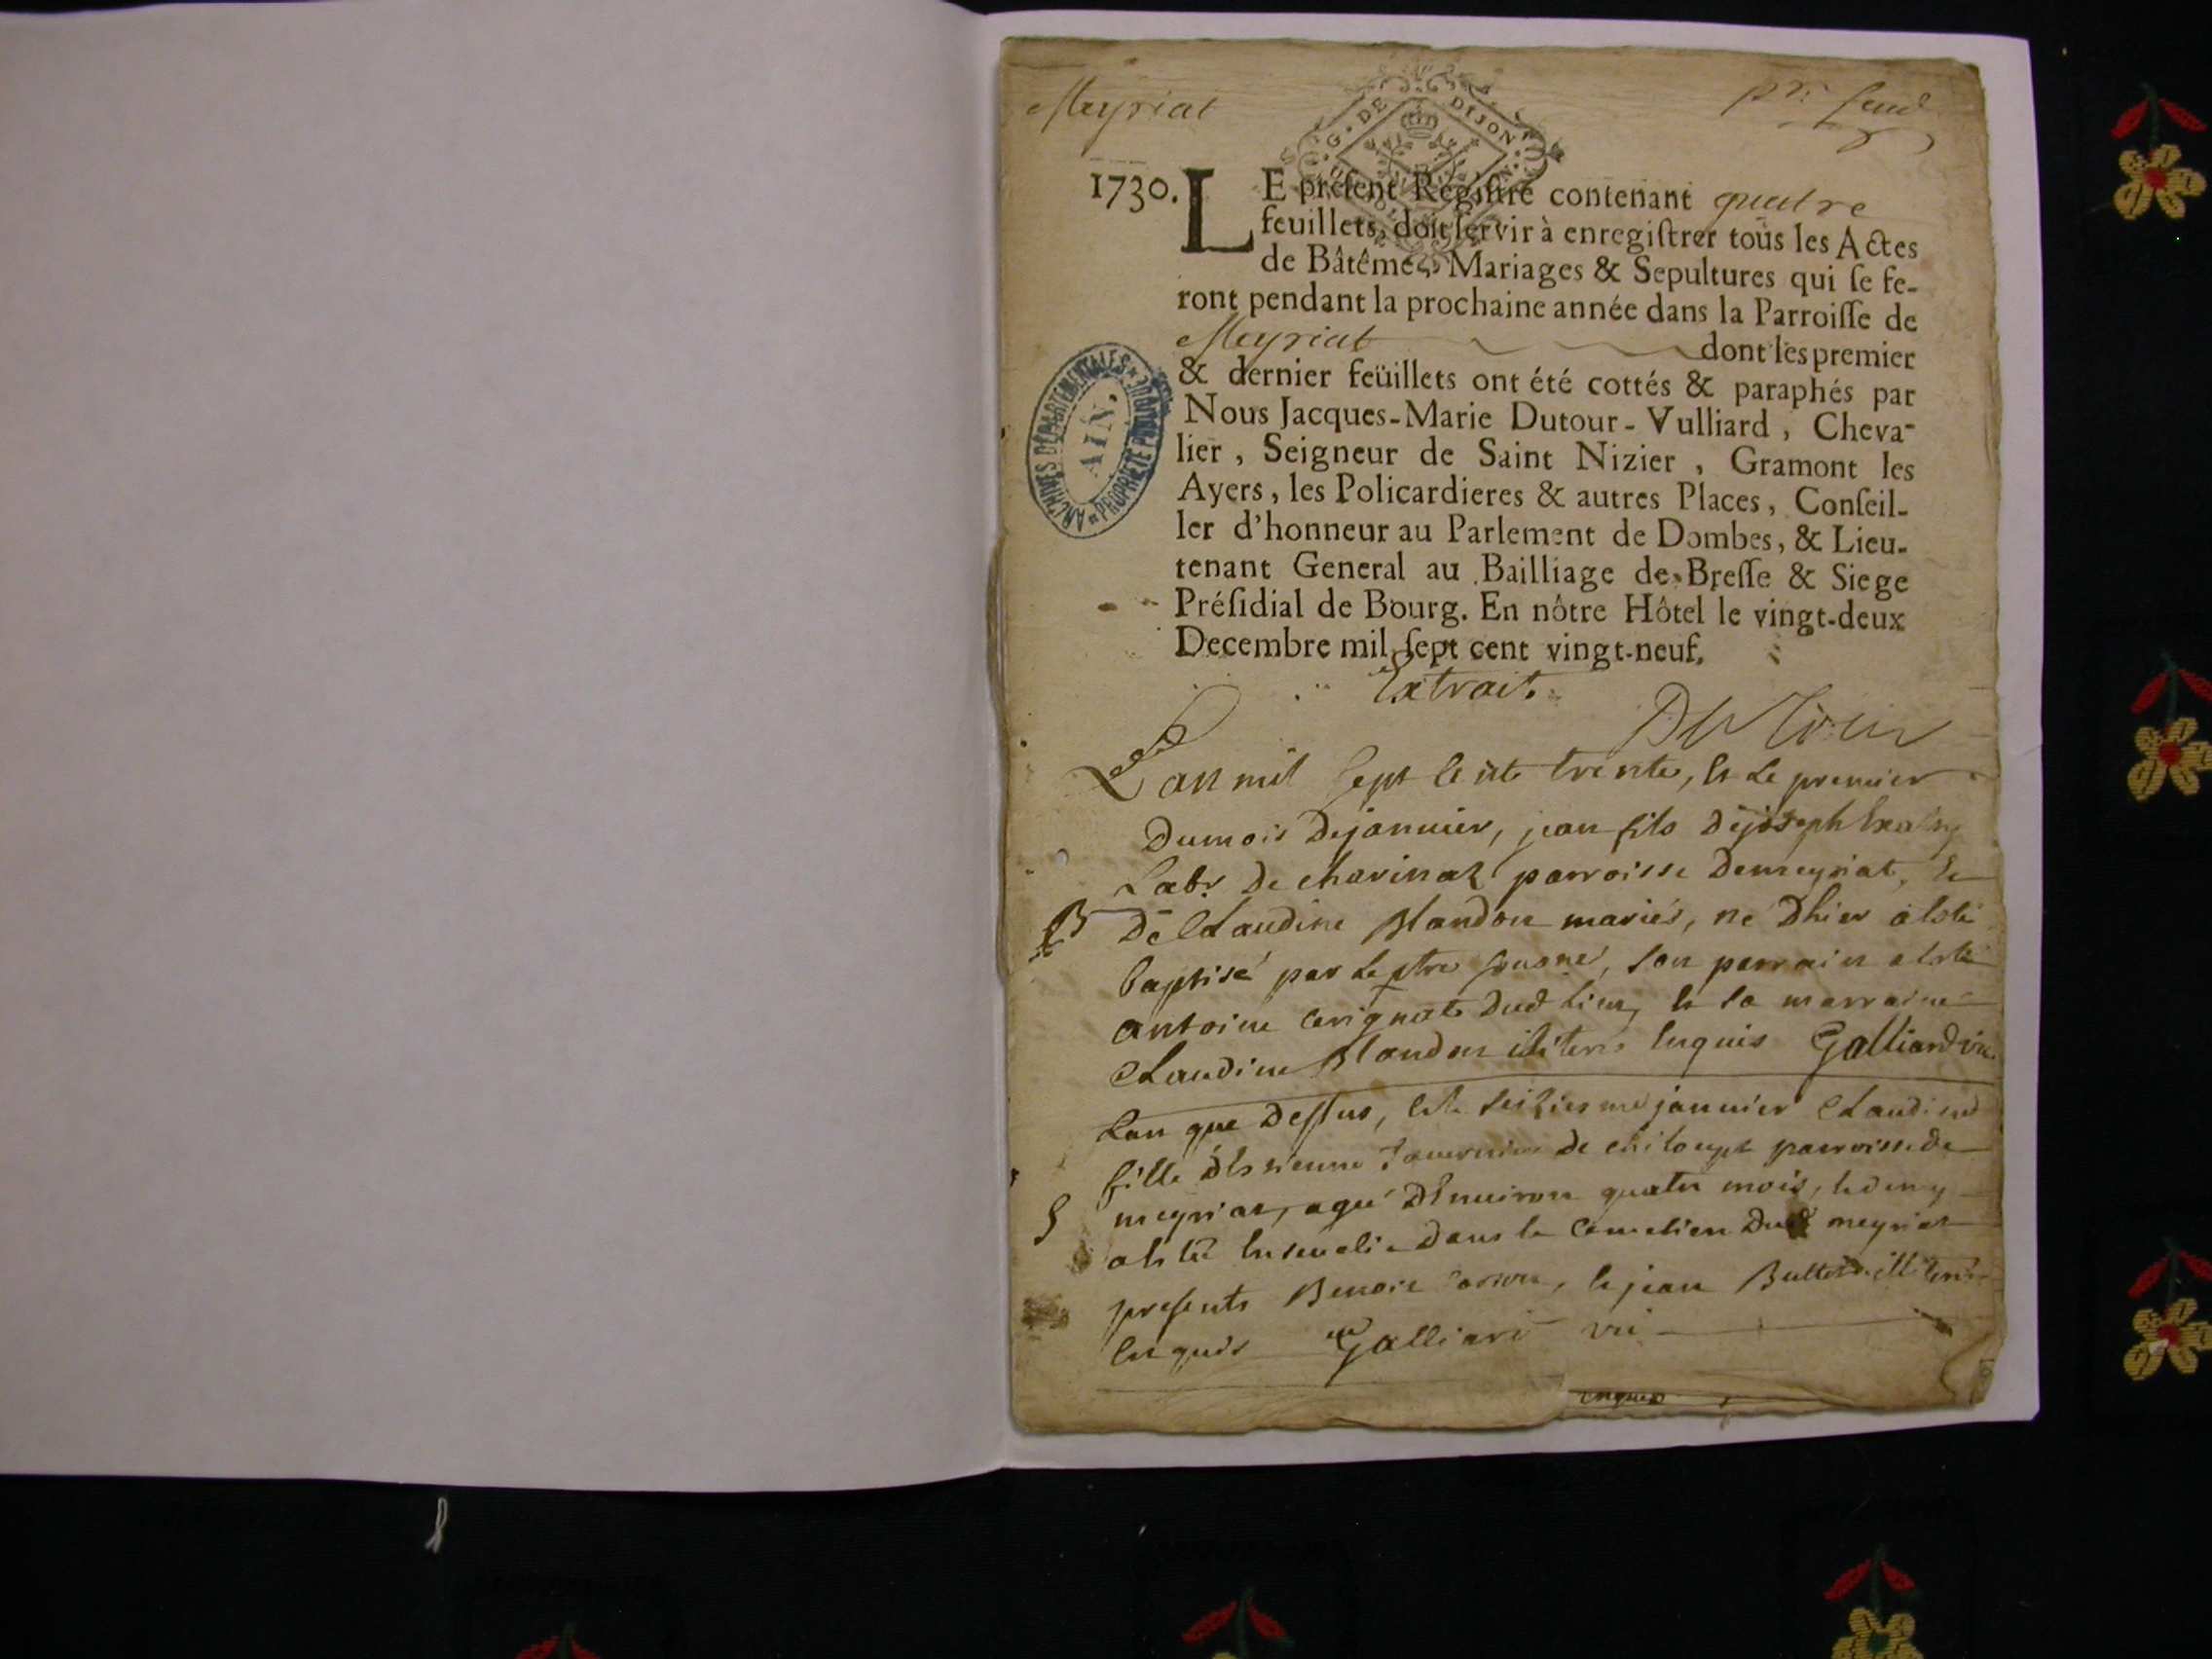 Meyriat
G. DE DIJON
1730. LE preſent Regiſtre contenant quatre
feuillets, doit ſervir à enregiſtrer tous les Actes
de Bâtêmes, Mariages & Sepultures qui ſe fe-
ront pendant la prochaine année dans la Parroiſſe de
Meyriat dont les premier
& dernier feüillets ont été cottés & paraphés par
Nous Jacques-Marie Dutour-Vulliard, Cheva-
lier, Seigneur de Saint Nizier, Gramont les
Ayers, les Policardieres & autres Places, Conſeil-
ler d'honneur au Parlement de Dombes, & Lieu-
tenant General au Bailliage de Breſſe & Siege
Préſidial de Bourg. En nôtre Hôtel le vingt-deux
Decembre mil ſept cent vingt-neuf.
ARCHIVES DÉPARTEMENTALES * PROPRIÉTÉ PUBLIQUE *
AIN.
Extrait.
Dutour
L'an mil sept cent trente, et le premier
Du mois De janvier, jean fils De joseph
Labr De charinaz parroisse De meyriat, et
B De Claudine Blandon mariés, né D'hier a esté
baptisé par le ptre soussigné, son parrain a esté
antoine Dud lieu, et sa marraine
Claudine Blandon illiterés enquis Galliard vic
L'an que Dessus, et le seiziesme janvier Claudine
fille D'estienne de chiloup parroisse de
S meyriat, agée D'environ quatre mois,
a esté ensevelie Dans le cemetiere Dud meyriat
presents Benoit, et jean illiterés
enquis Galliard vic
enquis